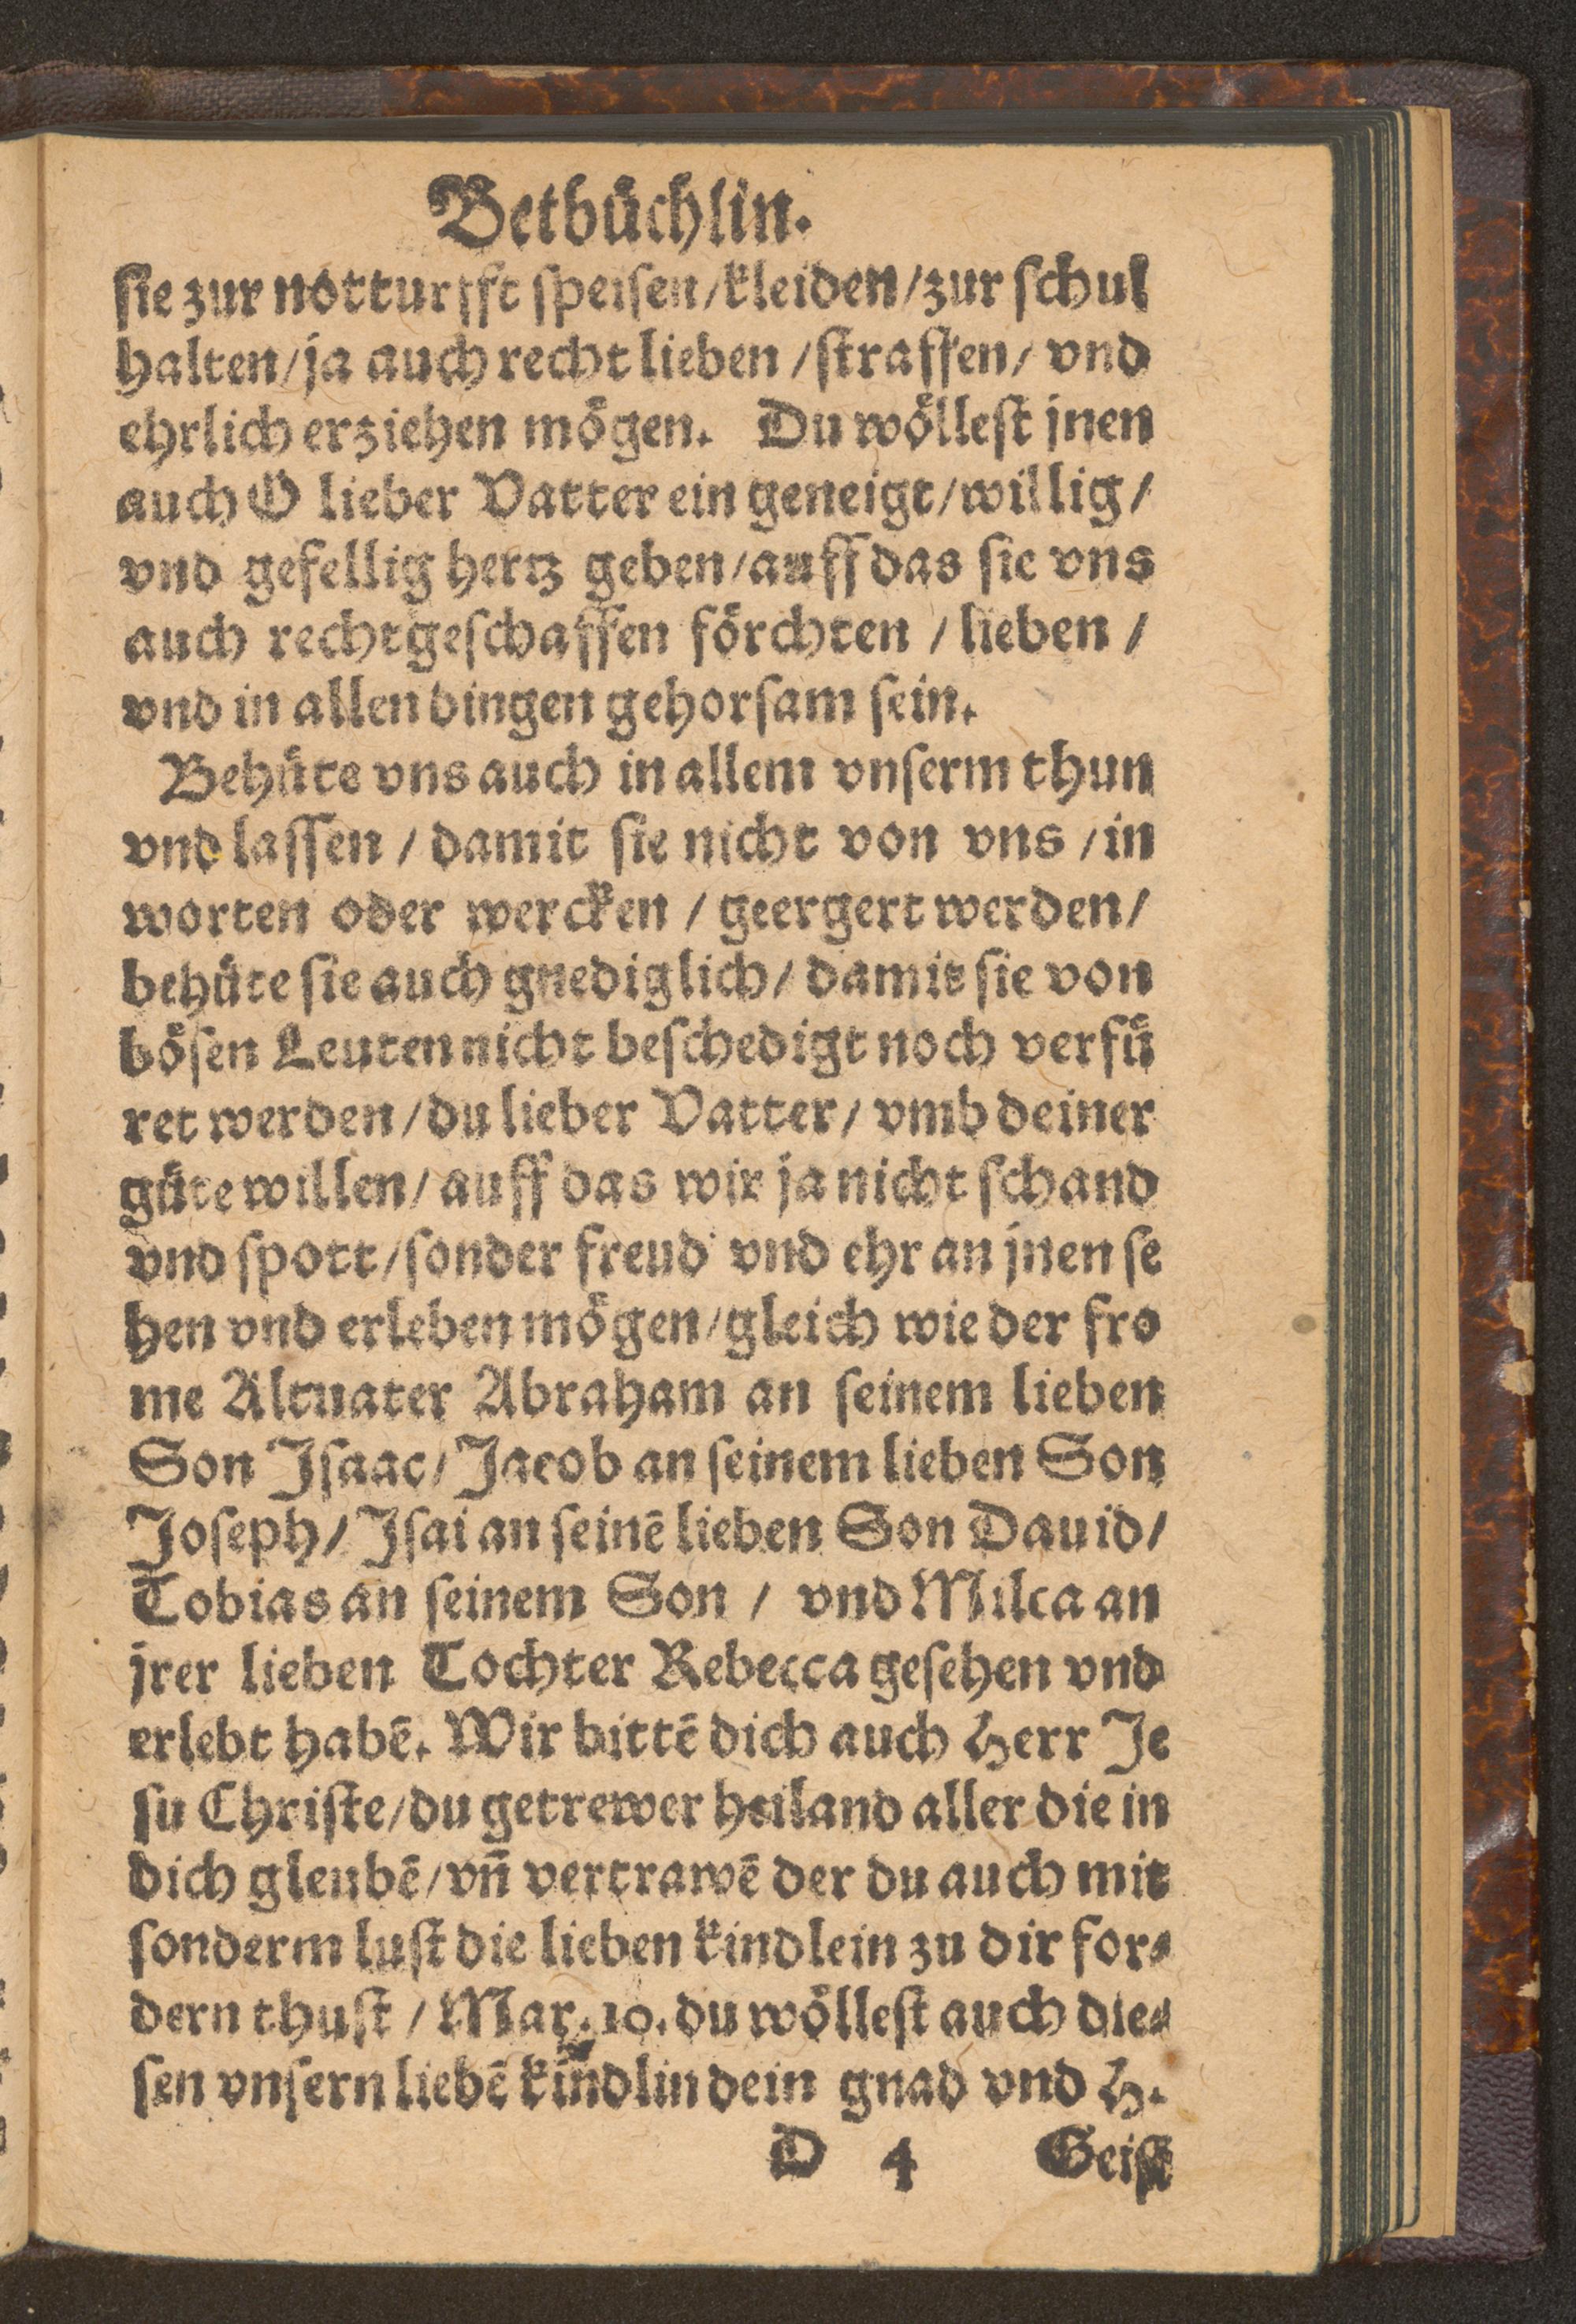 Betbüchlin.
ſie zur notturfft ſpeiſen/kleiden/zur ſchul
halten/ja auch recht lieben /ſtraffen/ vnd
ehrlich erziehen mögen. Du wölleſt jnen
auch O lieber Vatter ein geneigt/willig/
vnd gefellig hertz geben/auff das ſie vns
auch rechtgeſchaffen förchten / lieben /
vnd in allen dingen gehorſam ſein.
Behüte vns auch in allem vnſerm thun
vnd laſſen / damit ſie nicht von vns /in
worten oder wercken / geergert werden/
behüte ſie auch gnediglich/ damit ſie von
böſen Leuten nicht beſchedigt noch verfü
ret werden/du lieber Vatter/ vmb deiner
güte willen/ auff das wir ja nicht ſchand
vnd ſpott/ſonder freud vnd ehr an jnen ſe
hen vnd erleben mögen/gleich wie der fro
me Altuater Abraham an ſeinem lieben
Son Iſaac/ Jacob an ſeinem lieben Son
Joſeph/ Iſai an ſeinē lieben Son Dauid/
Tobias an ſeinem Son / vnd Milca an
jrer lieben Tochter Rebecca geſehen vnd
erlebt habē. Wir bittē dich auch Herr Je
ſu Chriſte/du getrewer heiland aller die in
dich gleubē/vn̄ vertrawē der du auch mit
ſonderm luſt die lieben kindlein zu dir for⸗
dern thuſt / Mar. 10. du wölleſt auch die⸗
ſen vnſern liebē kindlin dein gnad vnd H.
D 4 Geiſt